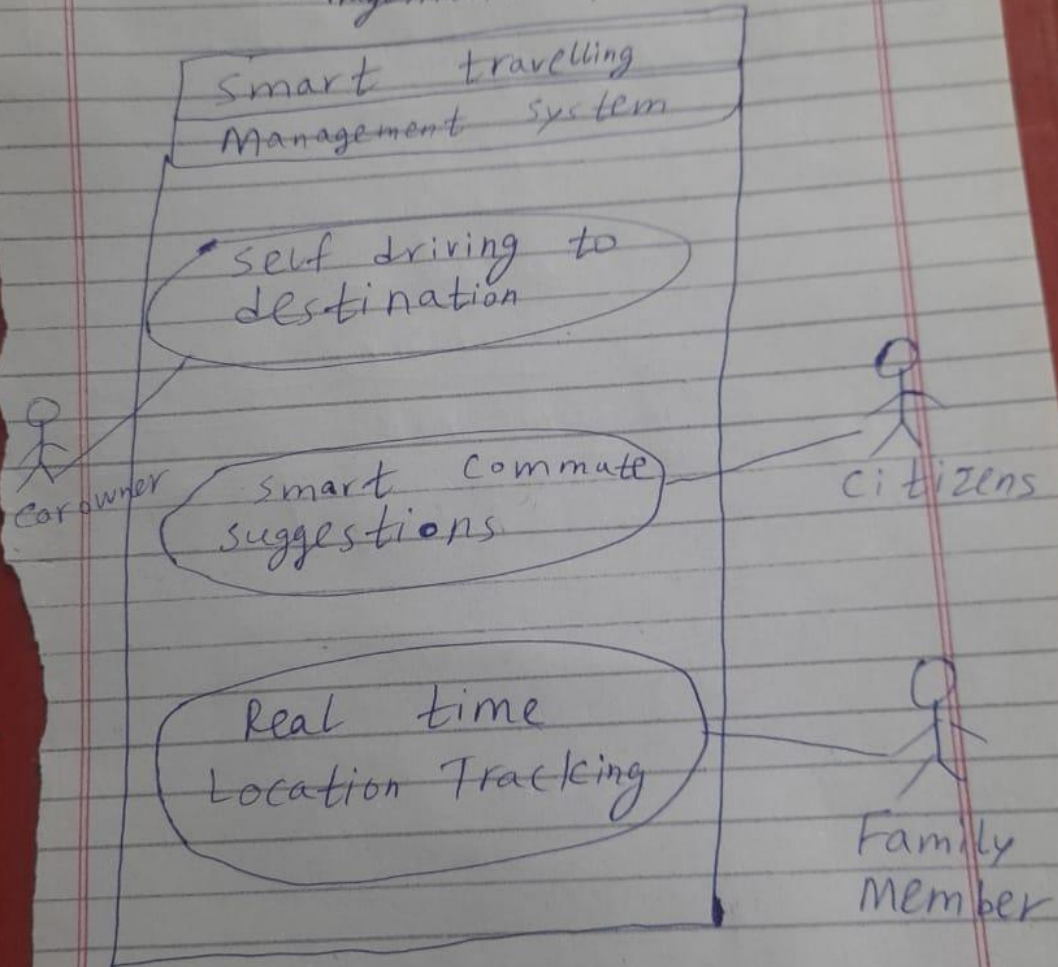 Smart travelling
Management system
self driving to
destination
car owner
smart commute
suggestions
citizens
Real time
Location Tracking
Family
Member